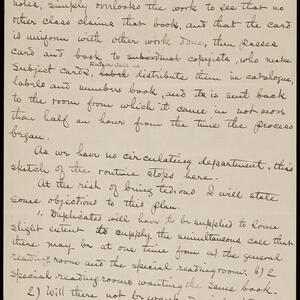 rules, simply overlooks the work to see that no
other class claims that book, and that the card
is uniform with other work done, then passes
card and book to subordinat copyists, who make
Subject cards, labels distribute them in catalogue,
labels and numbers book, and is sent back
to the room from which it came in not more
than half an hour from the time the process
began.
As we have no circulating department, this
sketch of the routine stops here.
At the risk of being tedious I will state
some objections to this plan.
1. Duplicates will have to be supplied to some
slight extent to supply the simultaneous call that
there may be at one time from a) the general
reading room and the special reading room, b) 2
special reading rooms wanting the same book.
2) Will there not be want